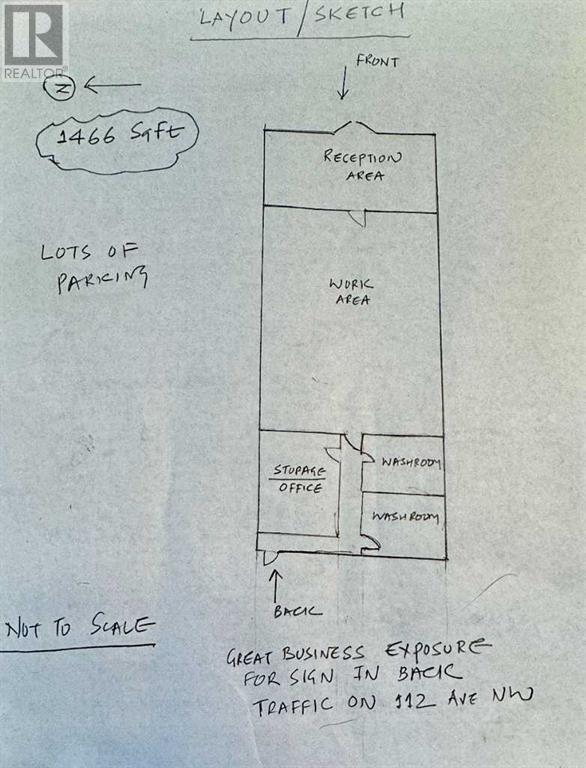 LAYOUT/SKETCH
REALTOR®
FRONT
N
1466 Sqft
RECEPTION
AREA
LOTS OF
PARKING
WORK
AREA
STORAGE
OFFICE
WASHROOM
WASHROOM
BACK
NOT TO SCALE
GREAT BUSINESS EXPOSURE
FOR SIGN IN BACK
TRAFFIC ON 112 AVE NW